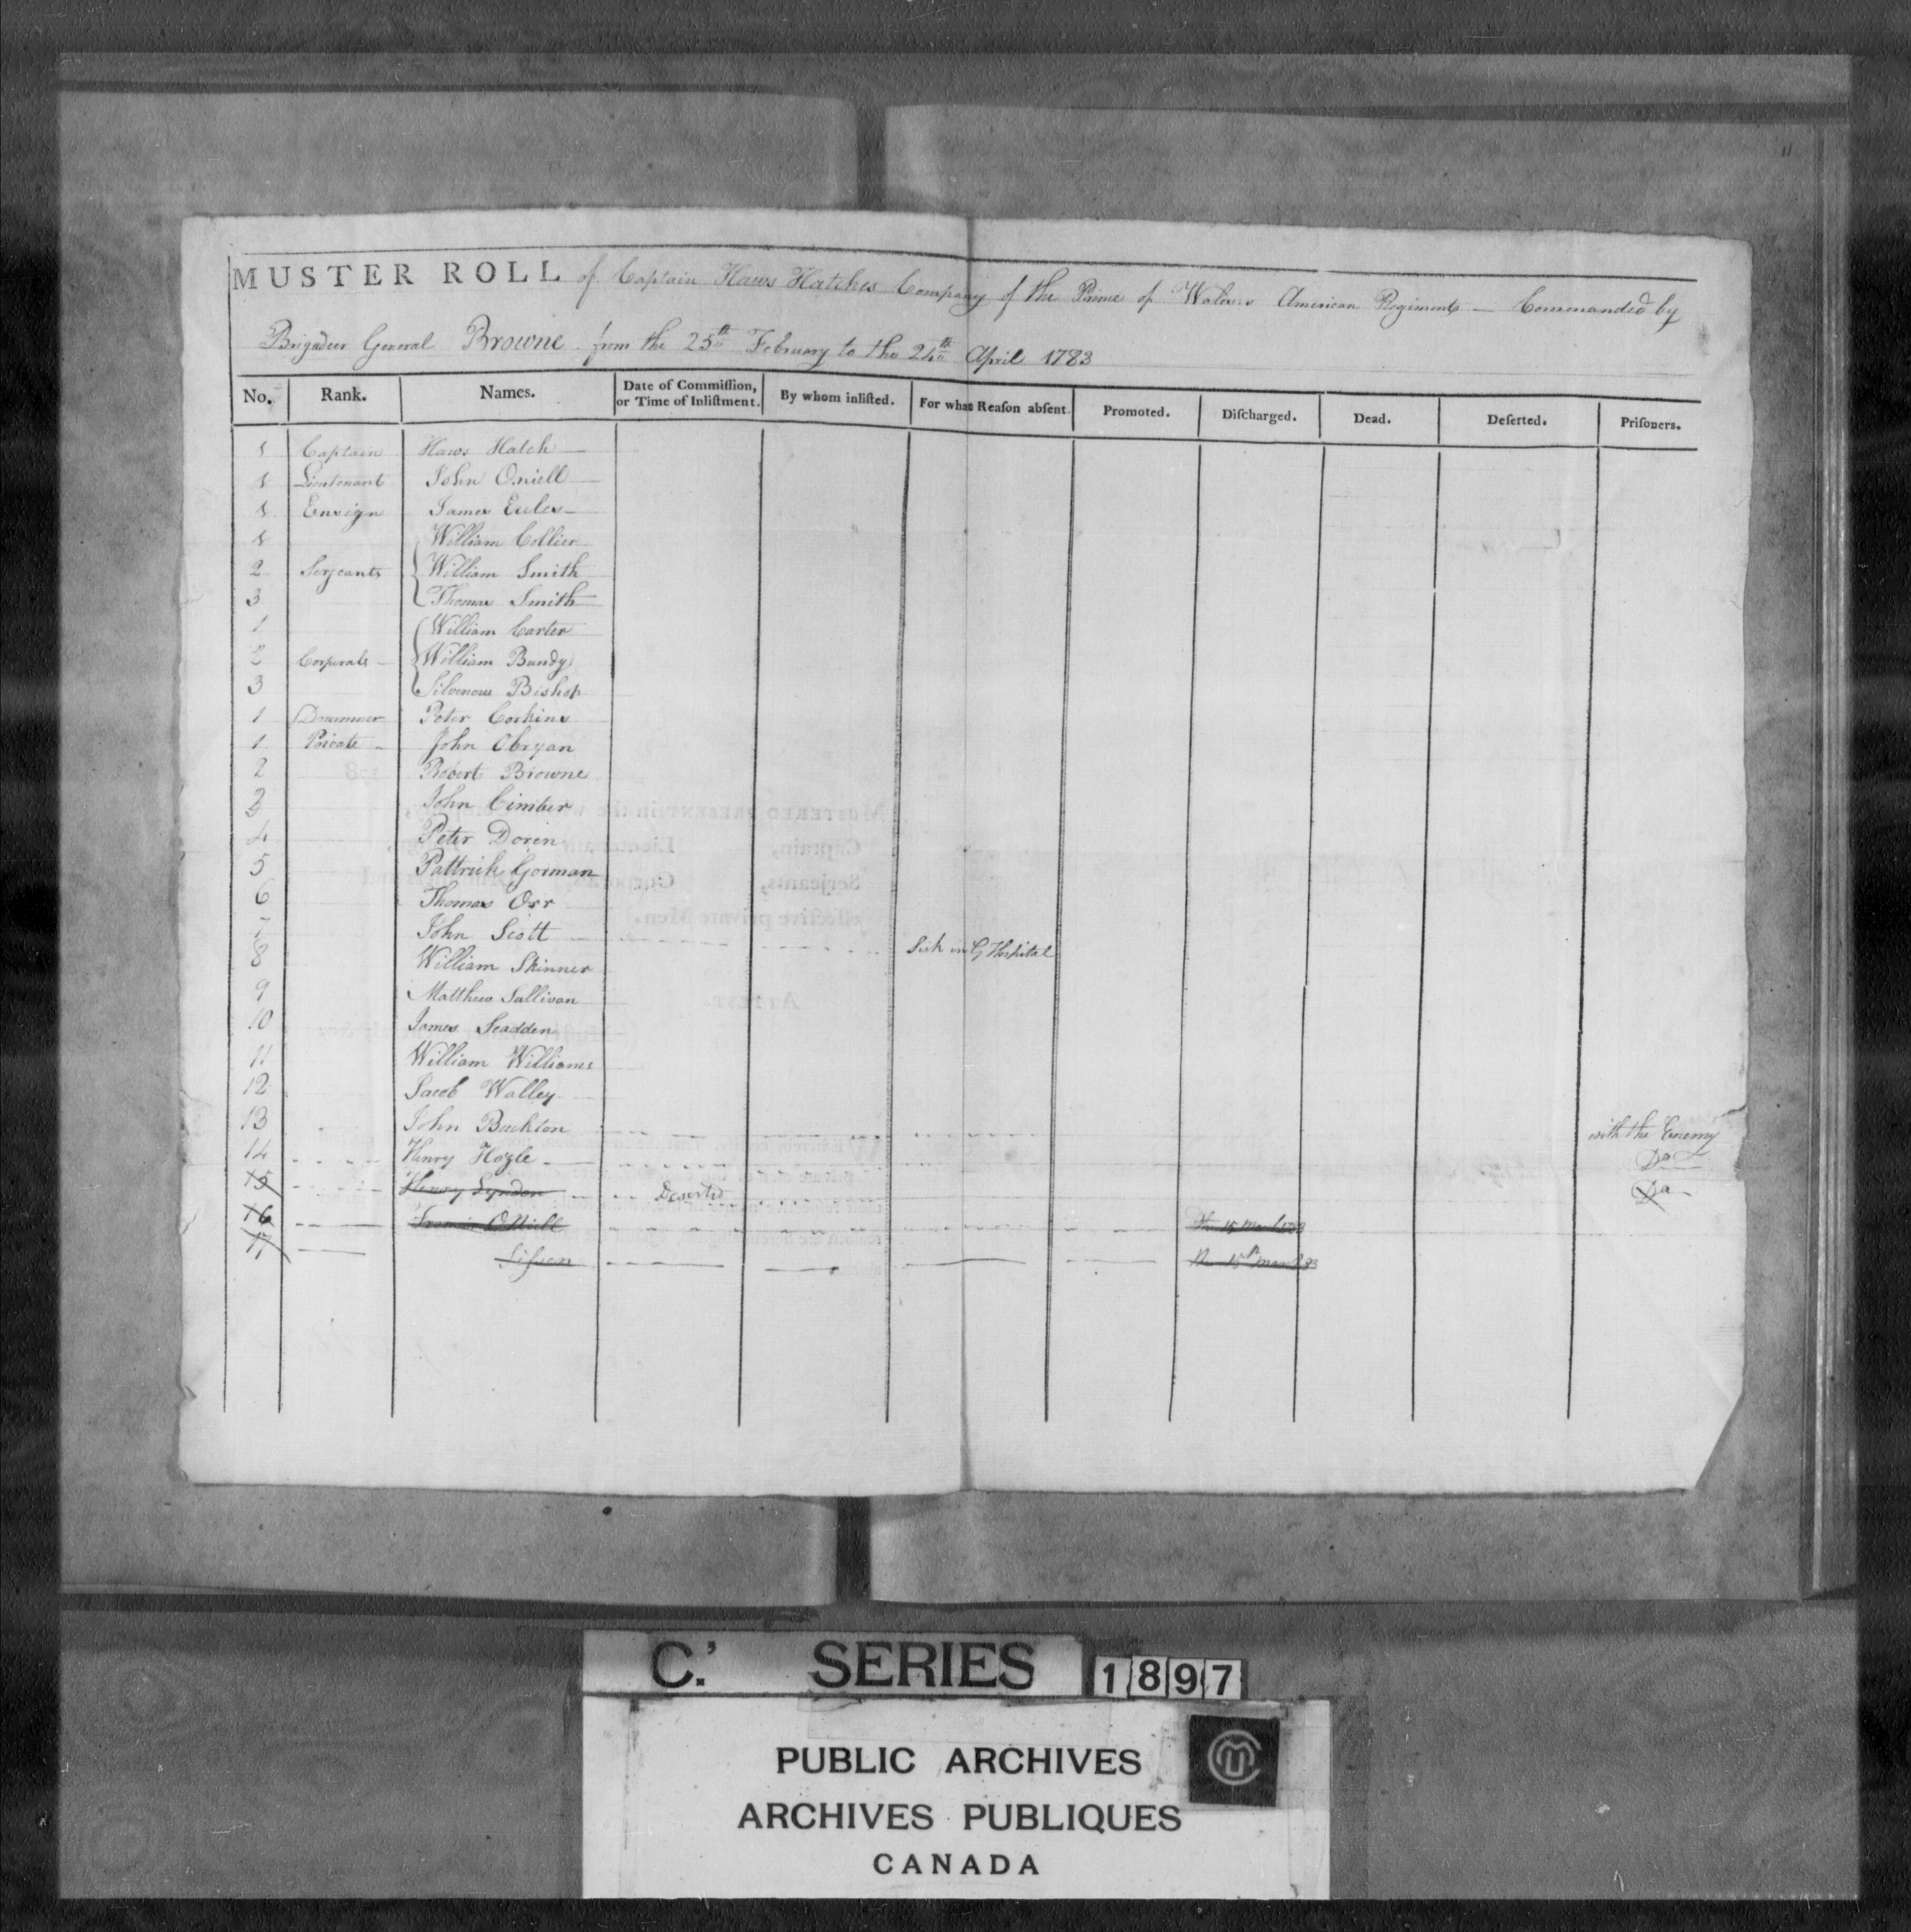 11
MUSTER ROLL of Captain Haws Hatches Company of the Prince of Wales's American Regiment — Commanded by
Brigadeer General Browne from the 25th February to the 24th April 1783
No. Rank. Names. Date of Commiſſion, or Time of Inliſtment. By whom inliſted. For what Reaſon abſent. Promoted. Diſcharged. Dead. Deſerted. Priſoners.
1 Captain Haws Hatch
1 Lieutenant John Oniell
1 Ensign James Eccles
1 William Collier
2 Serjeants William Smith
3 Thomas Smith
1 William Carter
2 Corporals William Bundy
3 Silvenous Bishop
1 Drummer Peter Corkins
1 Private John Obryan
2 Robert Browne
3 John Cimber
4 Peter Doren
5 Pattrick Gorman
6 Thomas Orr
7 John Scott Sick in G Hospital
8 William Skinner
9 Matthew Sullivan
10 James Scadden
11 William Williams
12 Jacob Walley
13 John Buckton with the Enemy
14 Henry Hogle Do
15 Henry Lyndon Deserted Do
16 Francis ONiell 15 March 1783
17 15th March 83
C.' SERIES 1897
PUBLIC ARCHIVES
ARCHIVES PUBLIQUES
CANADA